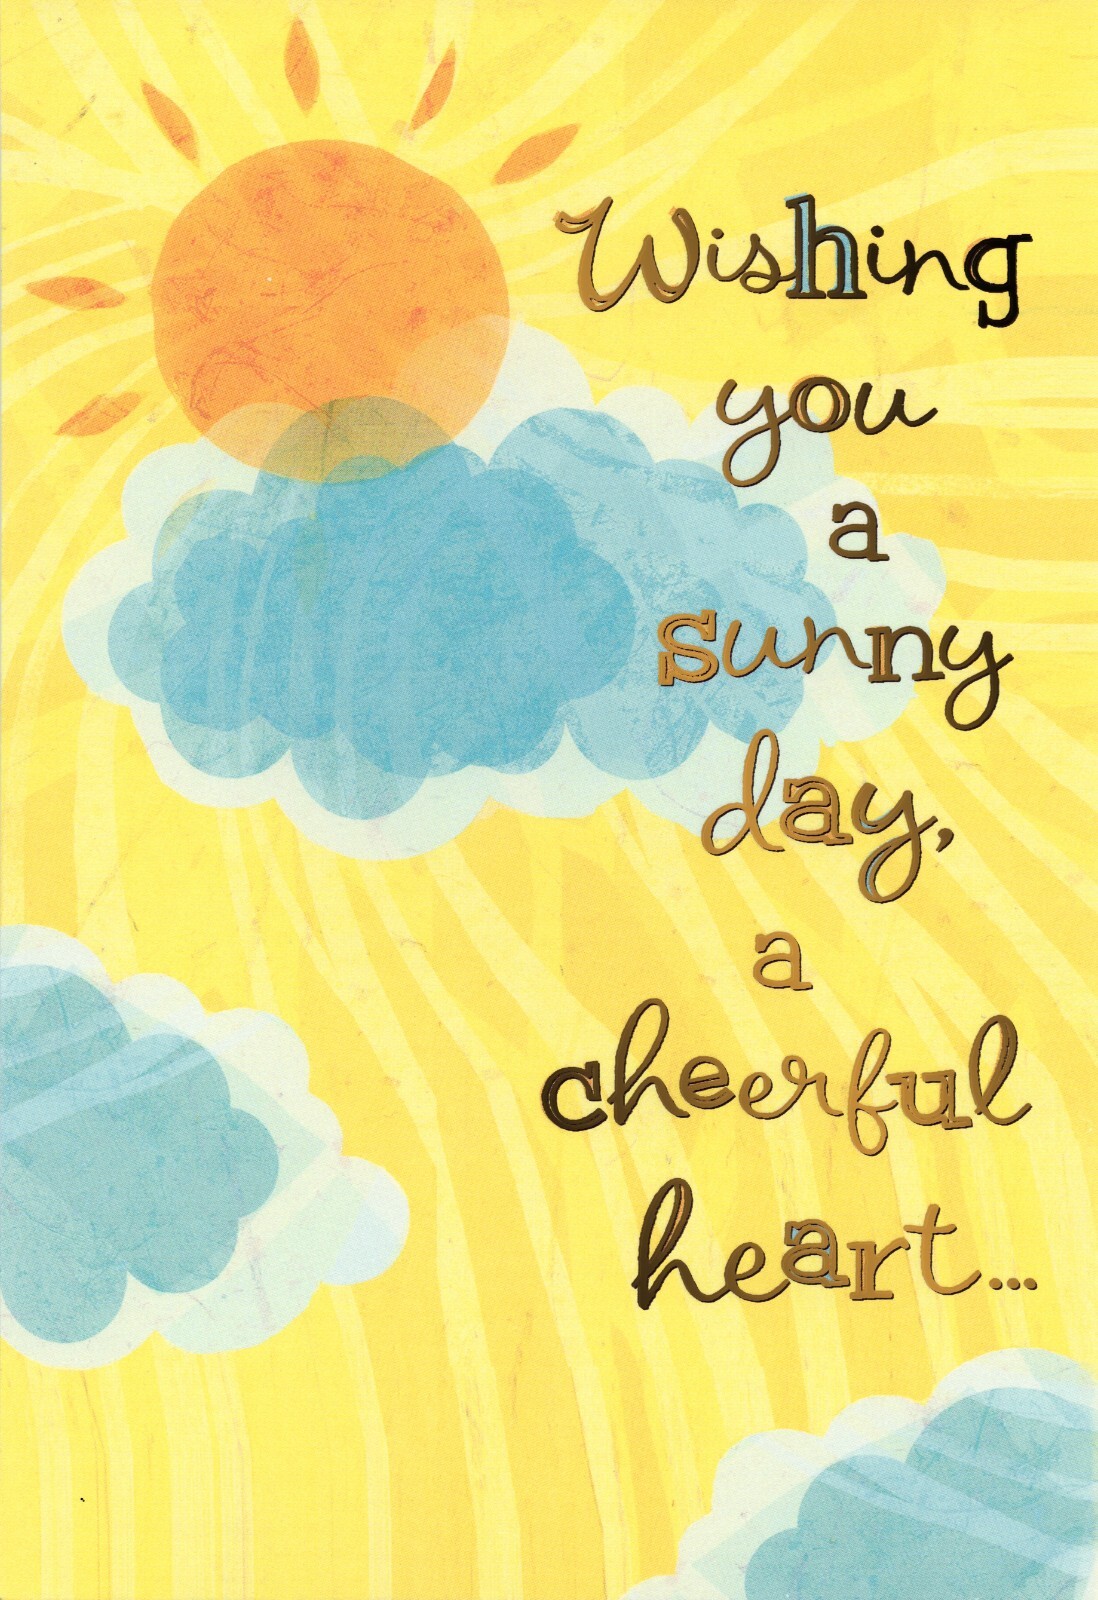 Wishing
you
a
sunny
day,
a
cheerful
heart...